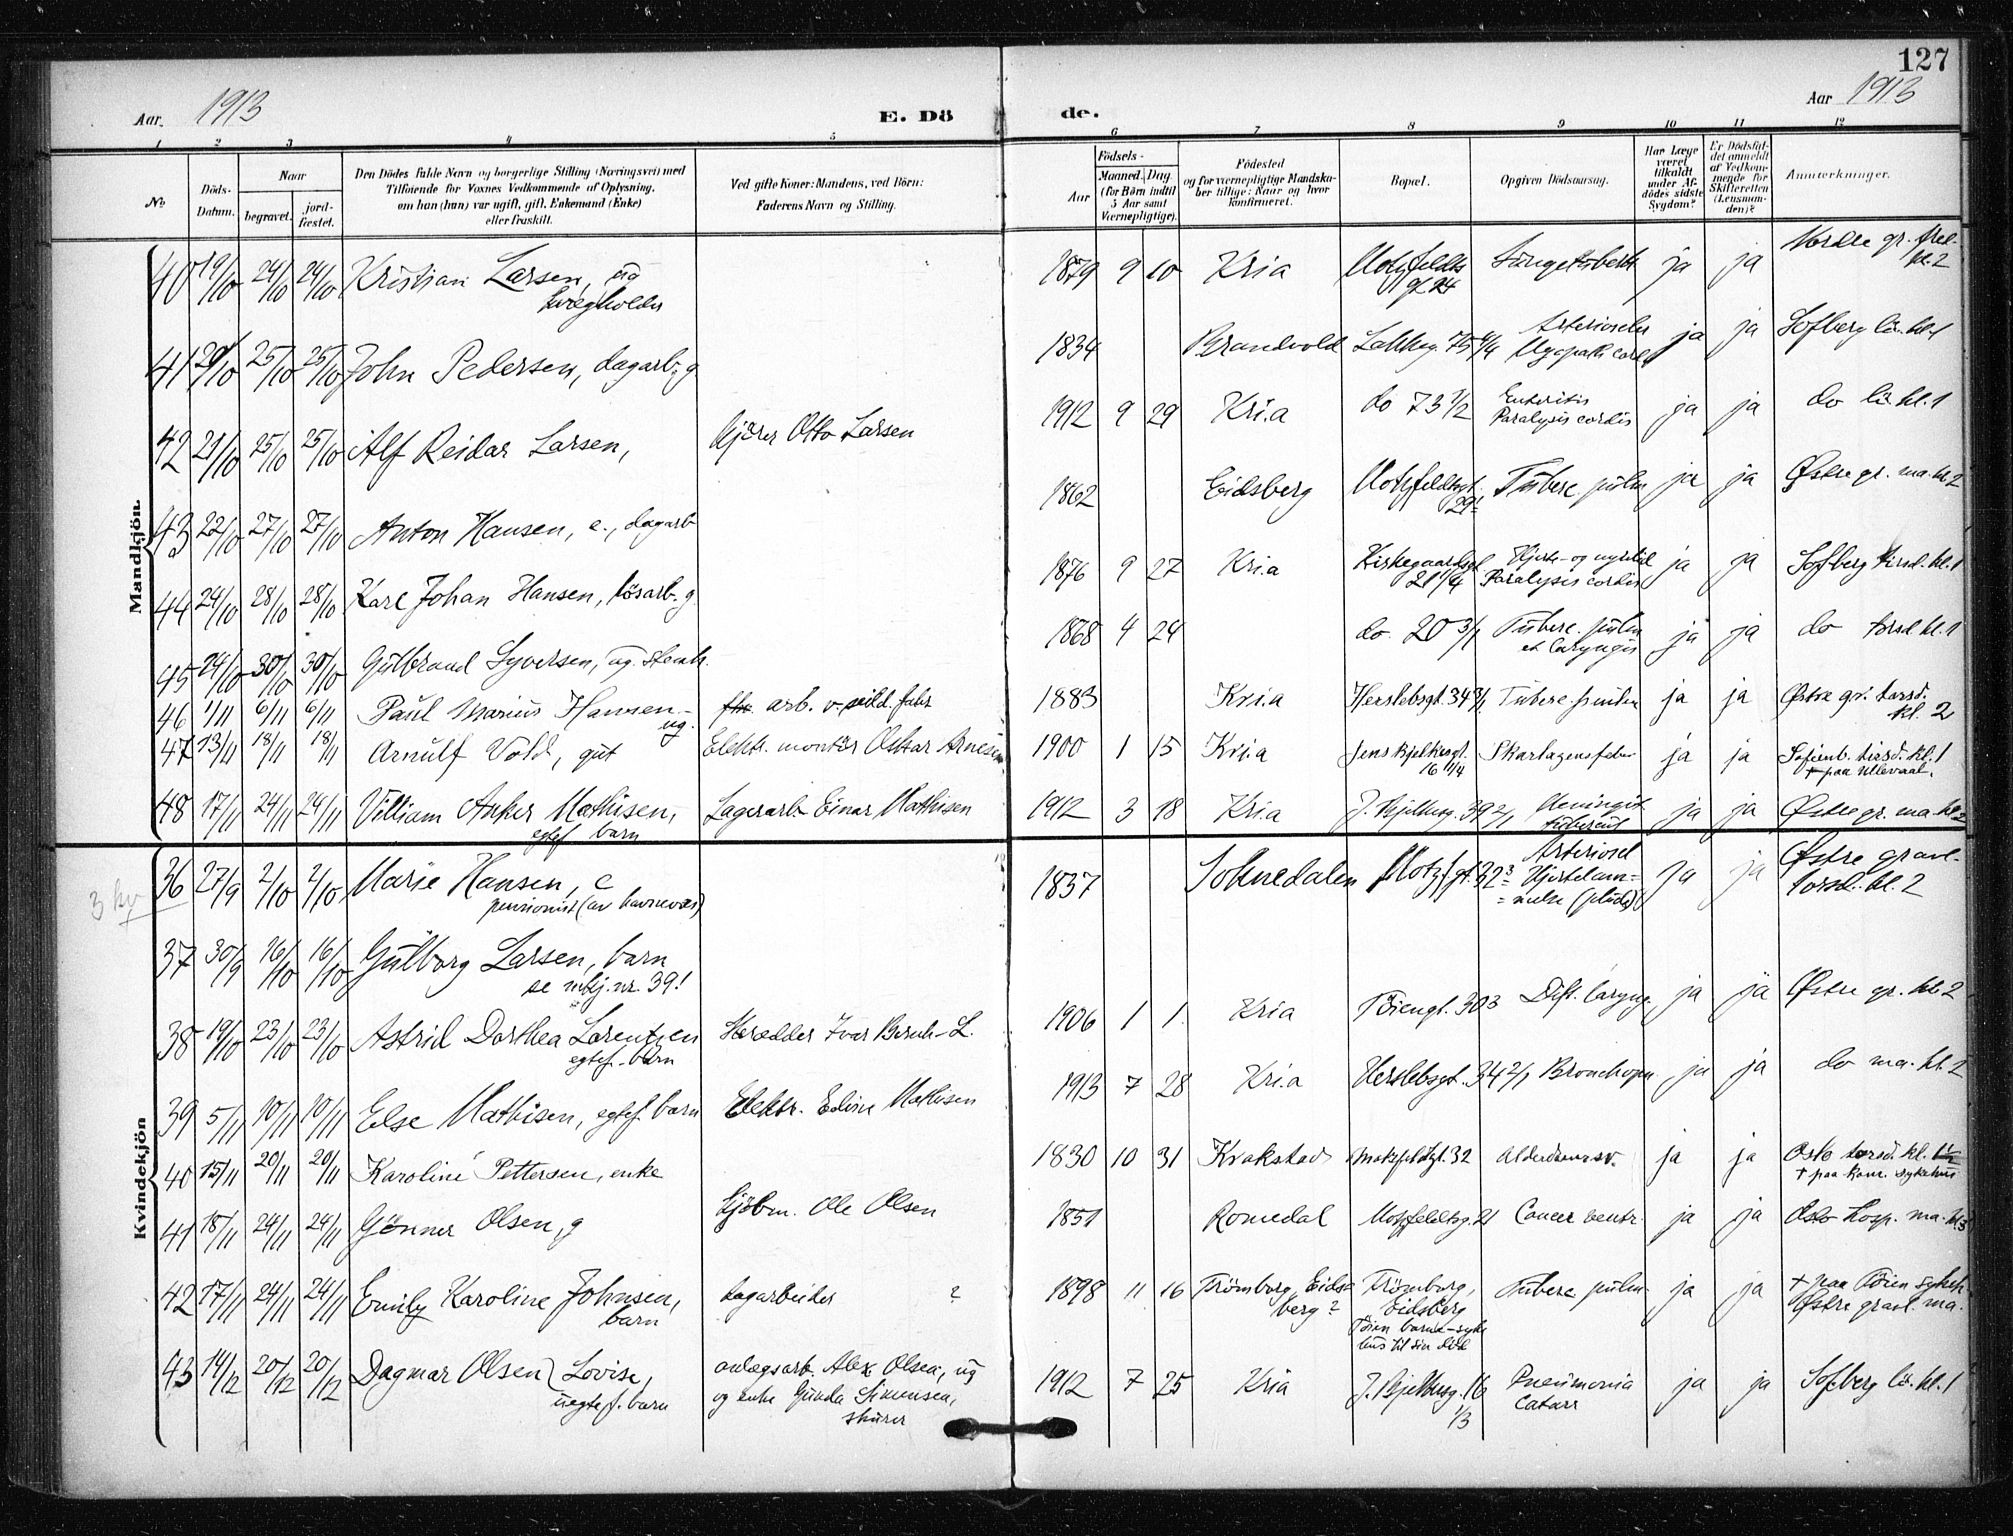 127
Aar. 1913
E. Dö
de.
Aar 1913
1 2 3 4 5 6 7 8 9 10 11 12
No
Döds-
Datum.
Naar
begravet.
jord-
fæstet.
Den Dödes fulde Navn og borgerlige Stilling (Næringsvei) med
Tilföiende for Voxnes Vedkommende af Oplysning,
om han (hun) var ugift, gift, Enkemand (Enke)
eller fraskilt.
Ved gifte Koner: Mandens, ved Börn:
Faderens Navn og Stilling.
Födsels-
Aar
Maaned. Dag.
(for Börn indtil
5 Aar samt
Værnepligtige).
Födested
og for værnepligtige Mandska-
ber tillige: Naar og hvor
konfirmeret.
Bopæl.
Opgiven Dödsaarsag.
Har Læge
været
tilkaldt
under Af-
dödes sidste
Sygdom?
Er Dödsfal-
det anmeldt
af Vedkom-
mende for
Skifteretten
(Lensman-
den)?
Anmærkninger.
Mandkjön.
40 19/10 24/10 24/10 Kristian Larsen, ug 1879 9 10 Kria Motzfeldts ja ja Nordre gr. fred.
gt 24 kl. 2
41 25/10 25/10 John Pedersen, dagarb, g 1834 Brandvold Arterioscler ja ja Sofberg lö. kl. 1
42 21/10 25/10 25/10 Alf Reidar Larsen, Kjörer Otto Larsen 1912 9 29 Kria do 73 1/2 Enteritis ja ja do lö. kl. 1
Paralysis cordis
43 22/10 27/10 27/10 Anton Hansen, e., dagarb 1862 Eidsberg Motzfeldtsgt. Tuberc. pulm ja ja Østre gr. ma. kl. 2
44 24/10 28/10 28/10 Karl Johan Hansen, lösarb. g 1876 9 27 Kria Kirkegaardsgt ja ja Sofberg tirsd. kl. 1
21 1/4 Paralysis cordis
45 24/10 30/10 30/10 Gulbrand Syversen, ug. 1868 4 24 do. 20 3/1 Tuberc. pulm ja ja do torsd kl. 1
et laryngis
46 1/11 6/11 6/11 Paul Marius Hansen - arb. v. 1883 Kria Herslebsgt. 34 3/1 ja ja Østre gr. torsd.
ug. kl. 2
47 13/11 18/11 18/11 Arnulf Vold, gut Elektr. montör Oskar Arnesen 1900 1 15 Kria Jens Bjelkesgt. Skarlagensfeber ja ja Sofienb. tirsd. kl. 1
16 1/4 + paa Ullevaal.
48 17/11 24/11 24/11 Villiam Anker Mathisen, Lagerarb. Einar Mathisen 1912 3 18 Kria J. Bjelkesg. 39 2/1 Meningit ja ja Østre gr. ma. kl. 2
egtef barn tubercul
Kvindekjön
3 kv
36 27/9 2/10 2/10 Marie Hansen, e 1837 Soknedalen Motzf. gt. 32 Arteriosel ja ja Østre gravl.
pensionist (av havnevæs) Hjertelam= torsd. kl. 2
37 30/9 16/10 16/10 Gulborg Larsen, barn
se mkj. nr. 39!
38 19/10 23/10 23/10 Astrid Dorthea Lorentzen Skrædder Ivar Bernh. L. 1906 1 1 Kria Töiengt. 30 3 Dift. laryng. ja ja Østre gr. kl. 2
egtef. barn
39 5/11 10/11 10/11 Else Mathisen, egtef. barn Elektr. Edvin Mathisen 1913 7 28 Kria Herslebsgt. 34 2/1 Bronchopn ja ja do ma. kl. 2
40 15/11 20/11 20/11 Karoline Pettersen, enke 1830 10 31 Krakstad Motzfeldtgt. 32 Alderdomssv. ja ja Oslo torsd. kl.
+ paa kom. sykehus
41 18/11 24/11 24/11 Gunner Olsen, g Kjöbm. Ole Olsen 1851 Romedal Motzfeldtsg. 21 Cancer ventr. ja ja Oslo hosp. ma. kl. 3
42 17/11 24/11 24/11 Emily Karoline Johnsen, dagarbeider ? 1898 11 16 Trömborg, Eids- Trömborg, Tuberc. pulm. ja ja + paa Töien sykeh
barn berg? Eidsberg Østre gravl. ma.
Töien barne-syke
hus til sin död
43 14/12 20/12 20/12 Dagmar Olsen) Lovise, anlægsarb. Alex Olsen, ug 1912 7 25 Kria J. Bjelkesg. 16 Pneumonia ja ja Sofberg lö. kl. 1
uegtef. barn og enke Gunda Simensen, 1/3 Catarr